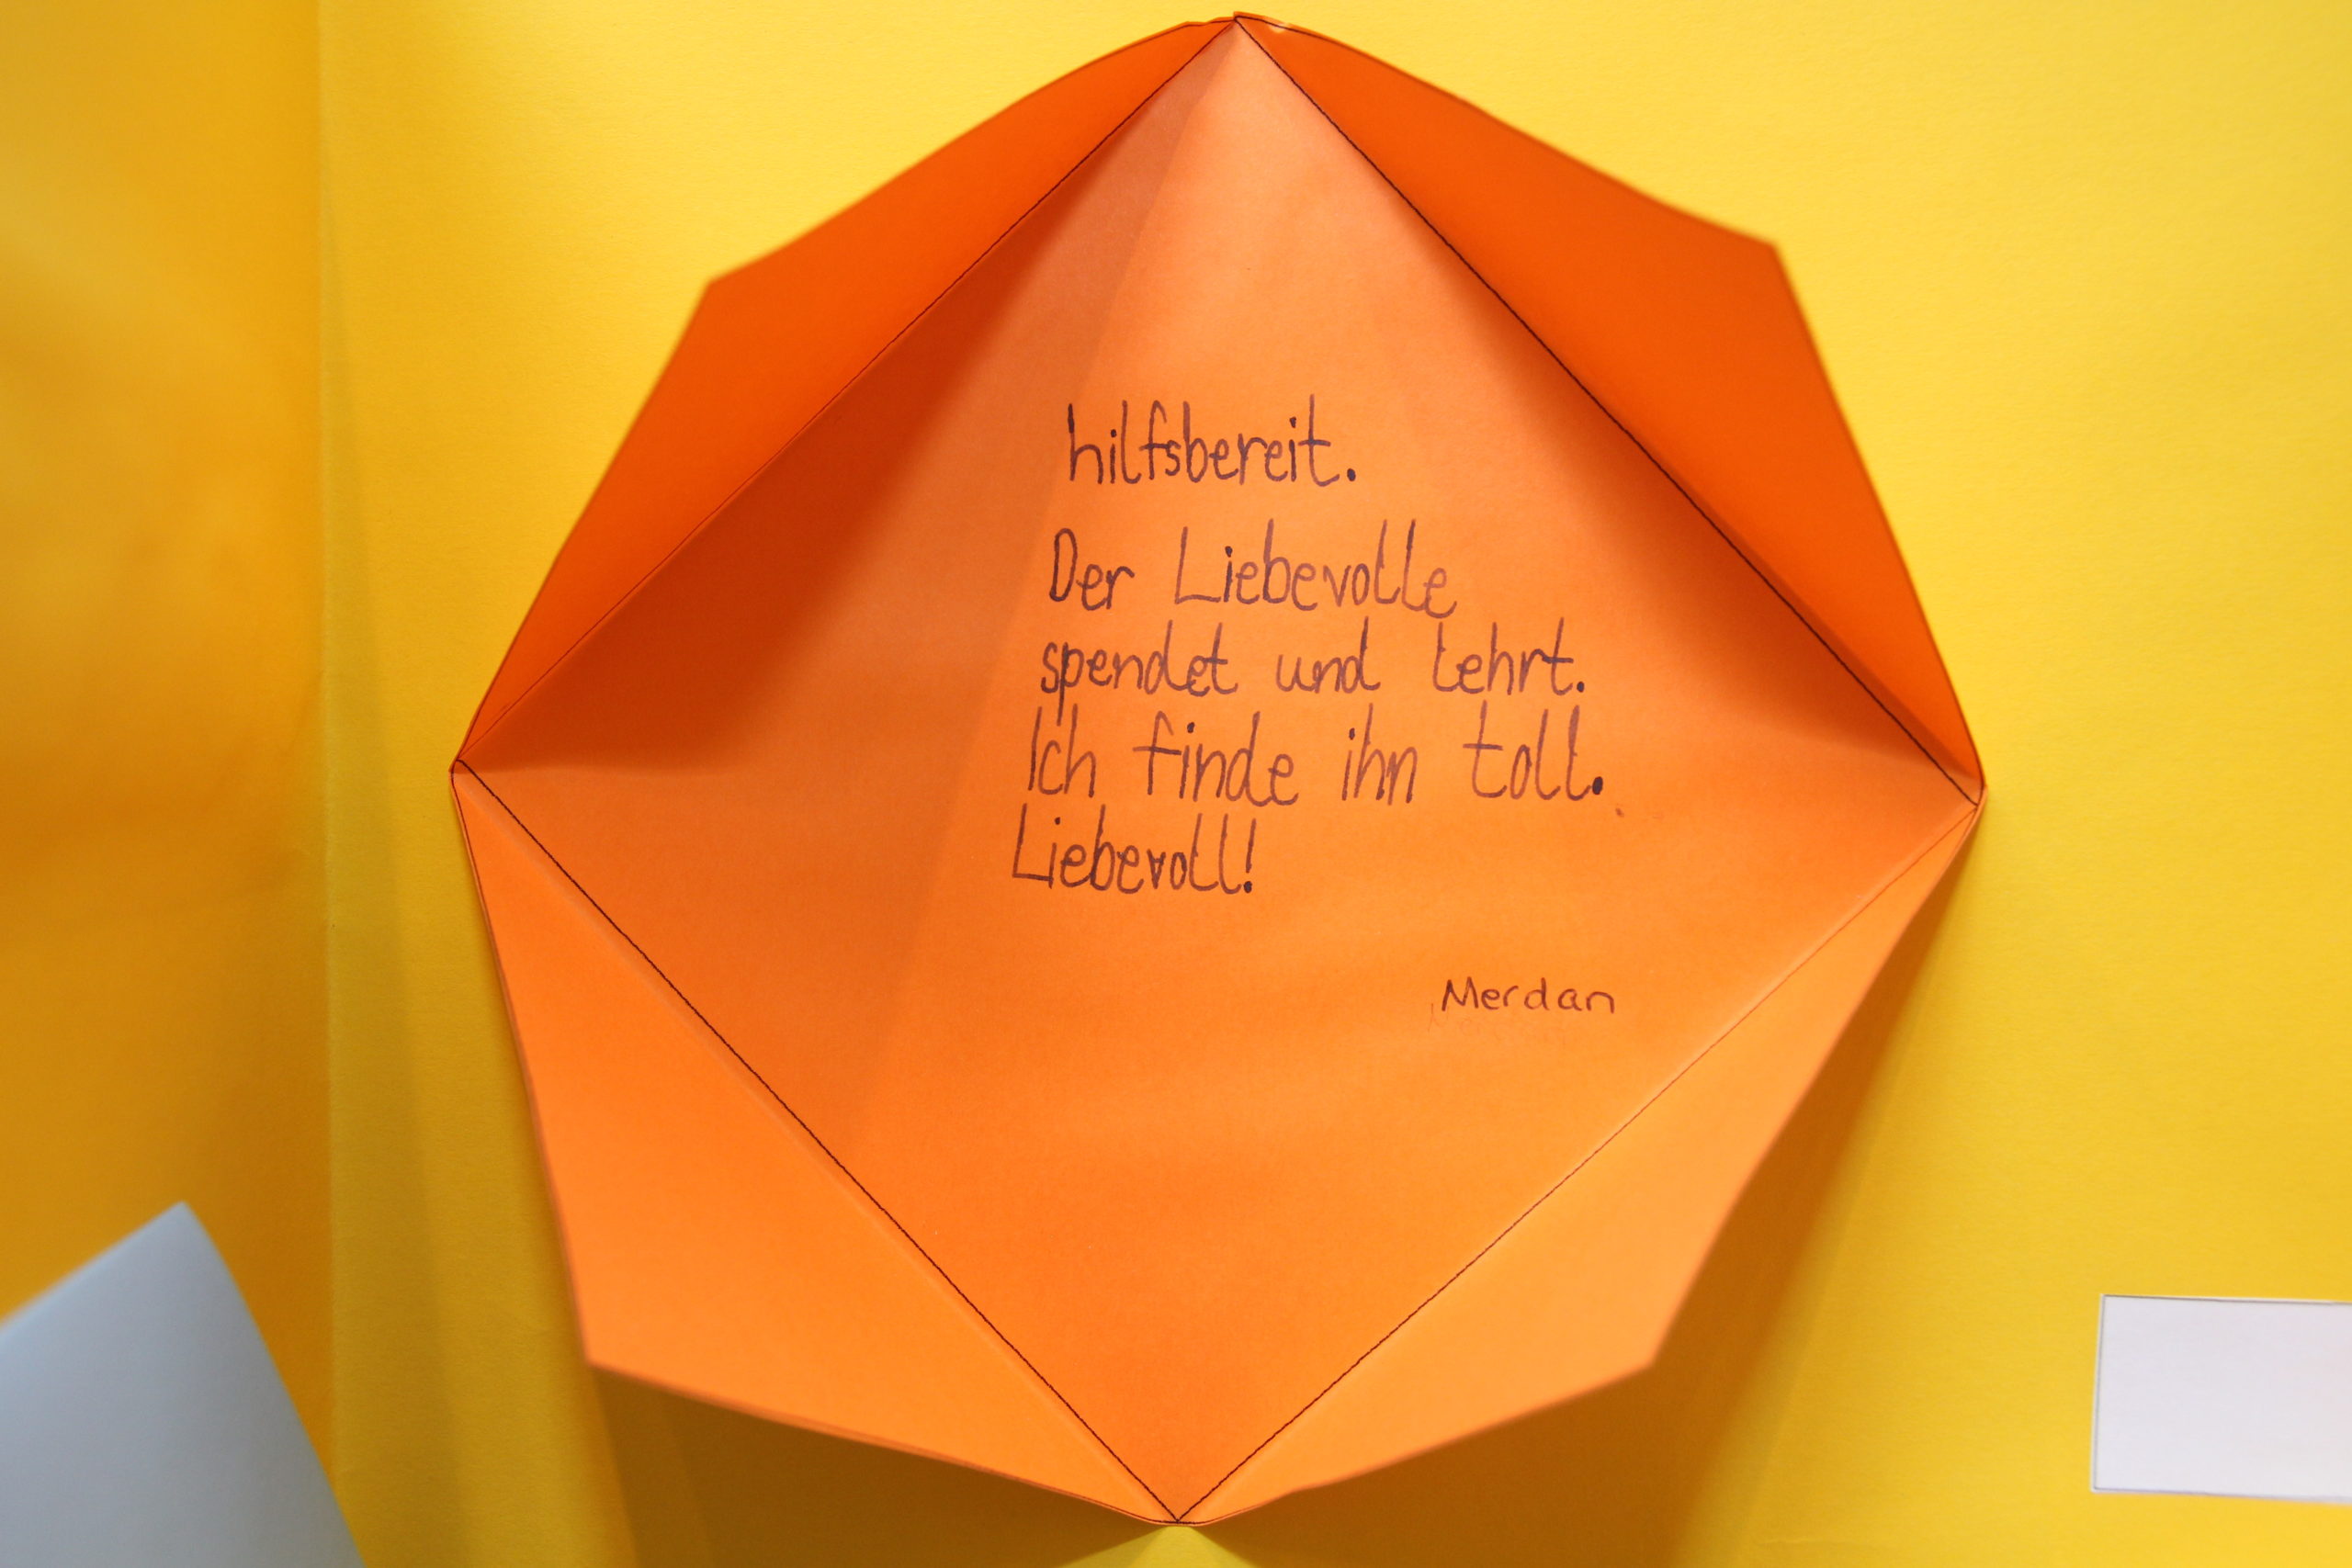 hilfsbereit.
Der Liebevolle
spendet und lehrt.
Ich finde ihn toll.
Liebevoll!
Merdan